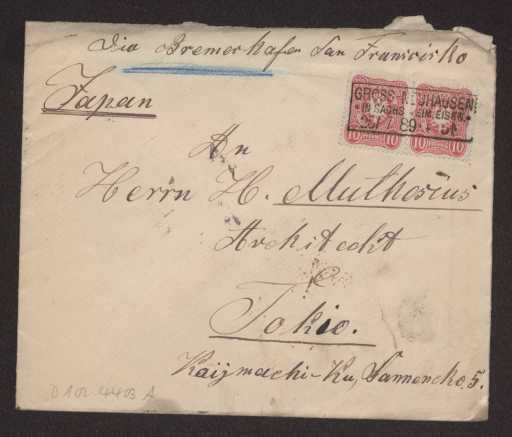 Via Bremerhafen San Franzisko
Japan
GROSS-NEUHAUSEN
IN SACHS.
89
10 10 10 10
An
Herrn H. Muthesius
Architecht
Tokio.
Kaijmachi-Ku, Sannencho 5.
D 102-4403 A